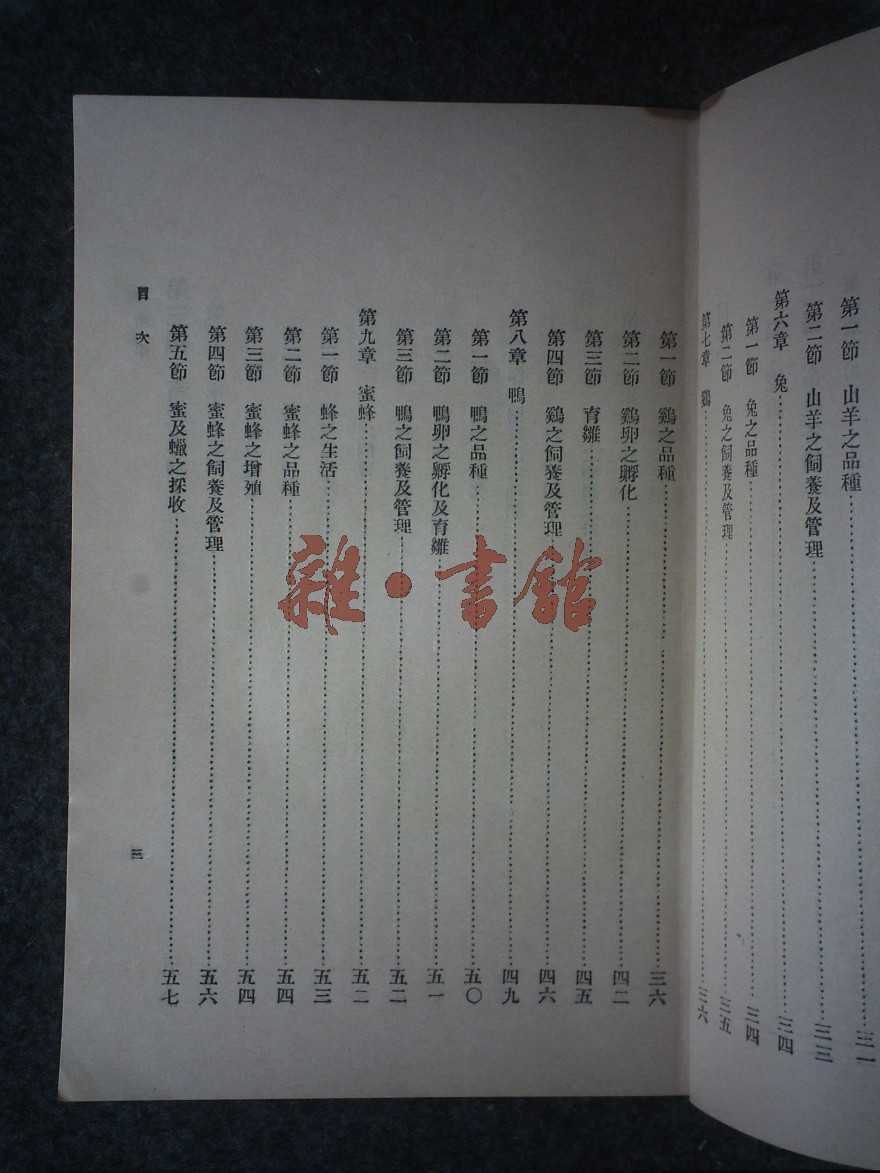 第一節 山羊之品種……三一
第二節 山羊之飼養及管理……三三
第六章 兔……三四
第一節 兔之品種……三四
第二節 兔之飼養及管理……三五
第七章 鷄……三六
第一節 鷄之品種……三六
第二節 鷄卵之孵化……四二
第三節 育雛……四五
第四節 鷄之飼養及管理……四六
第八章 鴨……四九
第一節 鴨之品種……五〇
第二節 鴨卵之孵化及育雛……五一
第三節 鴨之飼養及管理……五二
第九章 蜜蜂……五二
第一節 蜂之生活……五三
第二節 蜜蜂之品種……五四
第三節 蜜蜂之增殖……五四
第四節 蜜蜂之飼養及管理……五六
第五節 蜜及蠟之採收……五七
目次
三
雜·書館